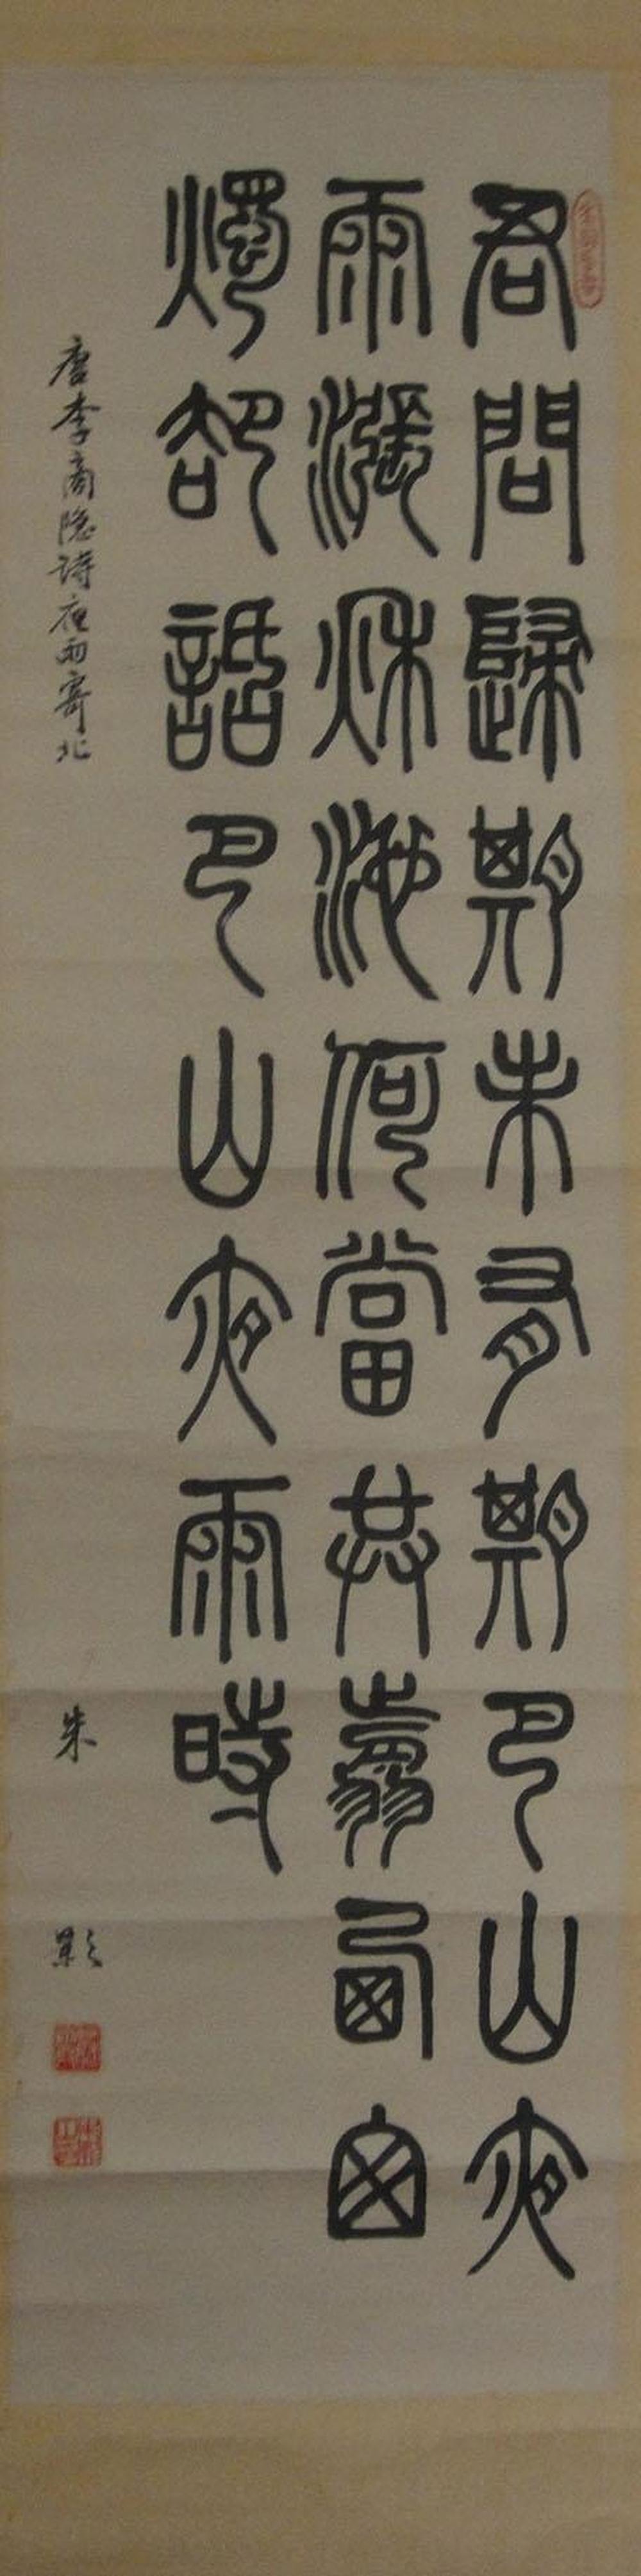 君問歸期未有期巴山夜
雨漲秋池何當共翦西囱
燭卻話巴山夜雨時
唐李商隐诗夜雨寄北
朱